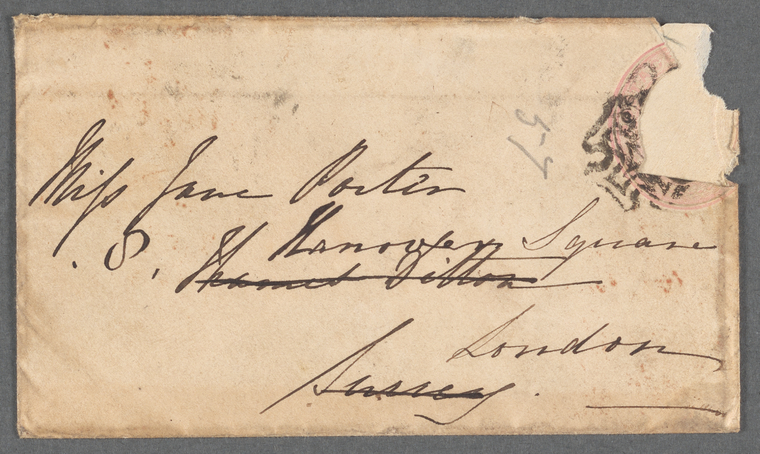 Miss Jane Porter
. 8. Hanover Square
Thames Ditton
London
Surrey.
57